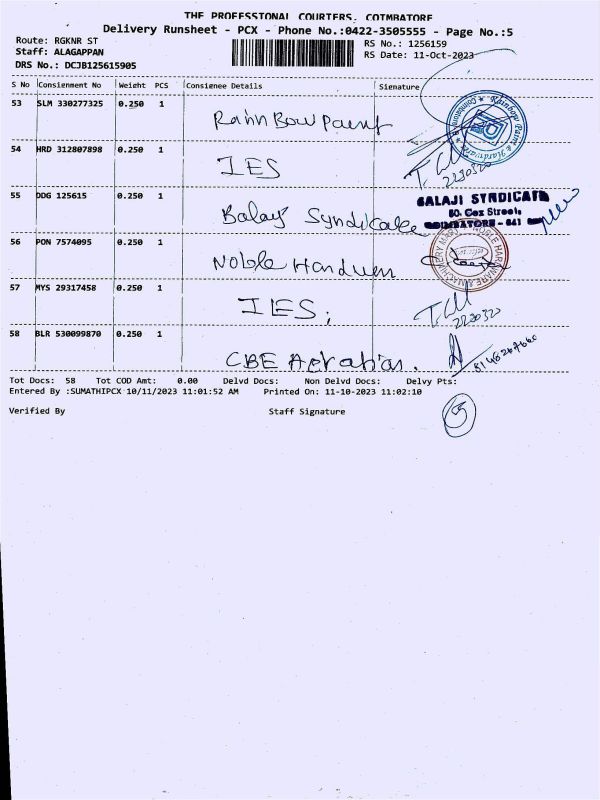 THE PROFESSIONAL COURIERS, COIMBATORE
Delivery Runsheet - PCX - Phone No.:0422-3505555 - Page No.:5
Route: RGKNR ST
RS No.: 1256159
Staff: ALAGAPPAN
RS Date: 11-Oct-2023
DRS No.: DCJB125615905
S No Consignment No Weight PCS Consignee Details Signature
53 SLM 330277325 0.250 1 Rainbow Paint
Rainbow Paint & Hardware
54 HRD 312807898 0.250 1 IES
2230320
55 DDG 125615 0.250 1 Balaji Syndicate
BALAJI SYNDICATE
60, Cox Street,
COIMBATORE - 641
56 PON 7574095 0.250 1 Noble Hardware
NOBLE HARDWARE & MACHINERY MART
57 MYS 29317458 0.250 1 IES,
2230320
58 BLR 530099870 0.250 1 CBE
Tot Docs: 58 Tot COD Amt: 0.00 Delvd Docs: Non Delvd Docs: Delvy Pts:
Entered By :SUMATHIPCX 10/11/2023 11:01:52 AM Printed On: 11-10-2023 11:02:10
Verified By Staff Signature
5